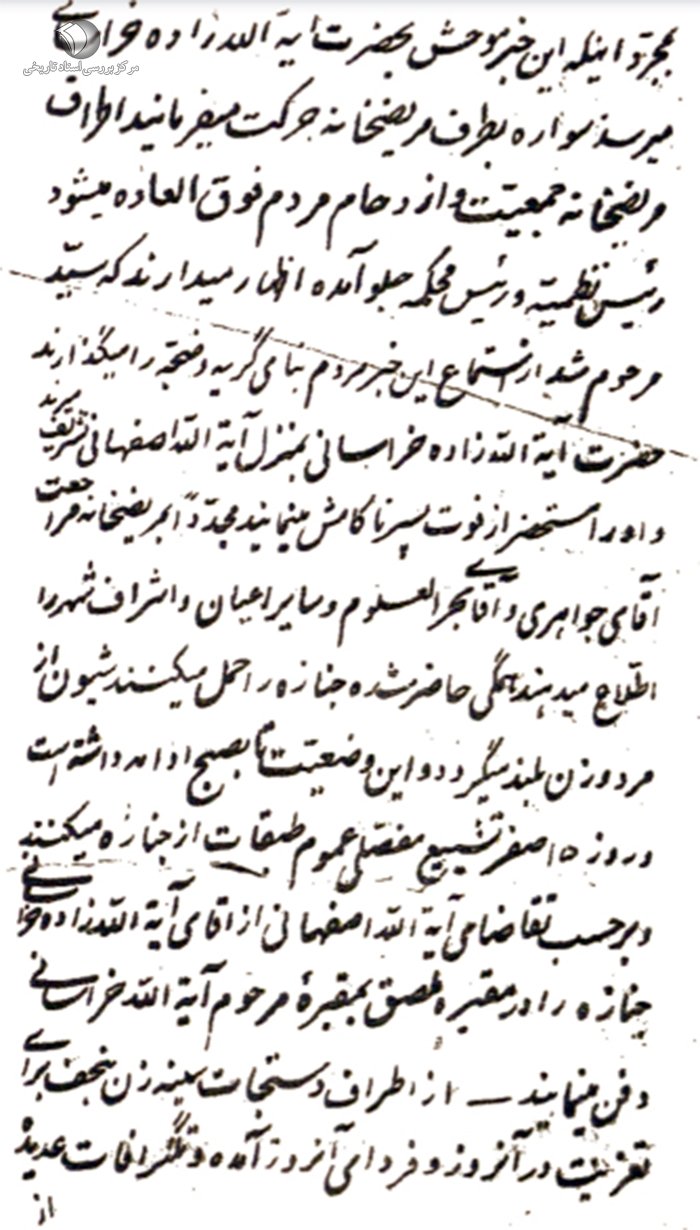 بمجرد اینکه این خبر موحش بحضرت آیة الله زاده خراسانی
مرکز بررسی اسناد تاریخی
میرسد سواره بطرف مریضخانه حرکت میفرمایند اطراف
مریضخانه جمعیت و ازدحام مردم فوق العاده میشود
رئیس نظمیه و رئیس محکمه جلو آمده اظهار میدارند که سید
مرحوم شد از استماع این خبر مردم بنای گریه و ضجه را میگذارند
حضرت آیة الله زاده خراسانی بمنزل آیة الله اصفهانی تشریف میبرند
و او را مستحضر از فوت پسر ناکامش مینمایند مجدداً بمریضخانه مراجعت
آقای جواهری و آقای بحرالعلوم و سایر اعیان و اشراف شهر را
اطلاع میدهند همگی حاضر شده جنازه را حمل میکنند شیون از
مرد و زن بلند میگردد و این وضعیت تا بصبح ادامه داشته است
و روز ۵ صفر تشییع مفصلی عموم طبقات از جنازه میکنند
و برحسب تقاضای آیة الله اصفهانی از آقای آیة الله زاده خراسانی
جنازه را در مقبره ملصق بمقبرهٔ مرحوم آیة الله خراسانی
دفن مینمایند — از اطراف دستجات سینه زن بنجف برای
تعزیت در آنروز و فردای آنروز آمده و تلگرافات عدیده
از